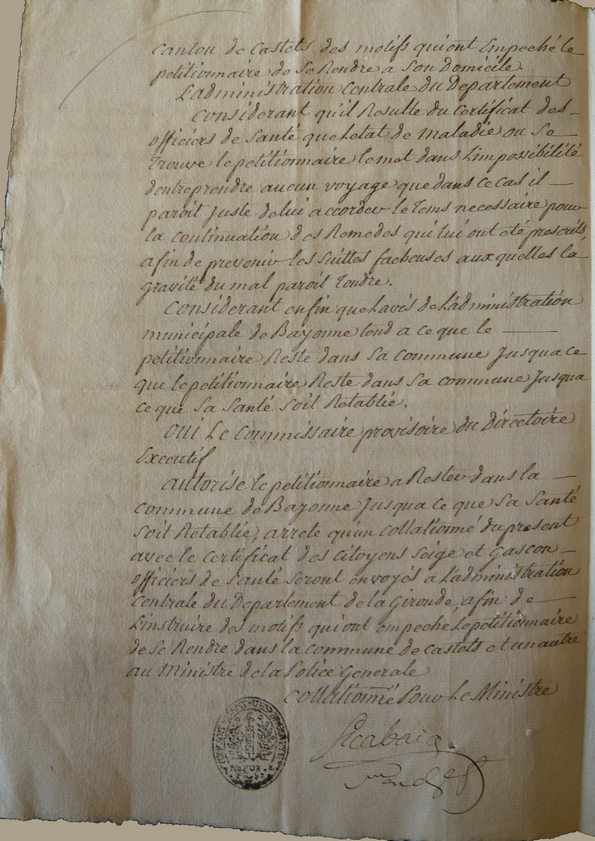 canton de Castets des motifs qui ont Empeché le
petitionnaire de se Rendre a son Domicile
L'administration Centrale du Departement
Considerant qu'il Resulte du Certificat des
officiers de Santé que L'etat de maladie ou se
Trouve le petitionnaire le met dans L'impossibilité
d'entreprendre aucun voyage que dans ce cas il
paroit juste de lui accorder le tems necessaire pour
la continuation des Remedes qui lui ont été prescrits,
afin de prevenir les suittes facheuses auxquelles la
gravité du mal paroit tendre.
Considerant enfin que L'avis de L'administration
municipale de Bayonne tend a ce que le
petitionnaire Reste dans sa commune Jusqua ce
que le petitionnaire Reste dans sa commune Jusqua
ce que Sa Santé Soit Retablie.
Oui Le Commissaire provisoire du Directoire
Executif
autorise le petitionnaire a Rester dans la
commune de Bayonne Jusqua ce que Sa Santé
Soit Retablie, arrete qu'un Collationné du present
avec le certificat des citoyens Seige et Gascon
officiers de Santé Seront envoyés a L'administration
Centrale du Departement de la Gironde, afin de
L'instruire des motifs qui ont empeché Le petitionnaire
de se Rendre dans la commune de Castets et un autre
au Ministre de la Police Generale
Collationné Pour Le Ministre